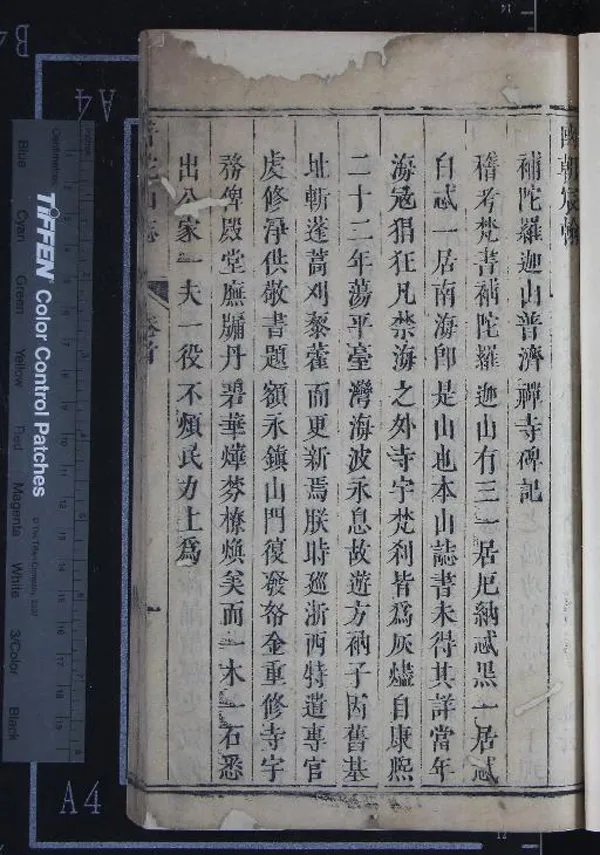 國朝宸翰
補陀羅迦山普濟禪寺碑記
稽考梵書補陀羅迦山有三一居厄納忒黑一居忒
白忒一居南海卽是山也本山誌書未得其詳當年
海寇猖狂凡禁海之外寺宇梵刹皆爲灰燼自康熙
二十二年蕩平臺灣海波永息故遊方衲子因舊基
址斬蓬蒿刈藜藿而更新焉朕時廵浙西特遣專官
虔修淨供敬書題額永鎮山門復發帑金重修寺宇
務俾殿堂廡牖丹碧華燁棼橑煥矣而一木一石悉
出公家一夫一役不煩民力上爲
普陀山志
卷首
一
Centimetres
Inches
Blue
Cyan
Green
Yellow
Red
Magenta
White
3/Color
Black
TIFFEN Color Control Patches
© The Tiffen Company, 2007
B
A4
A4